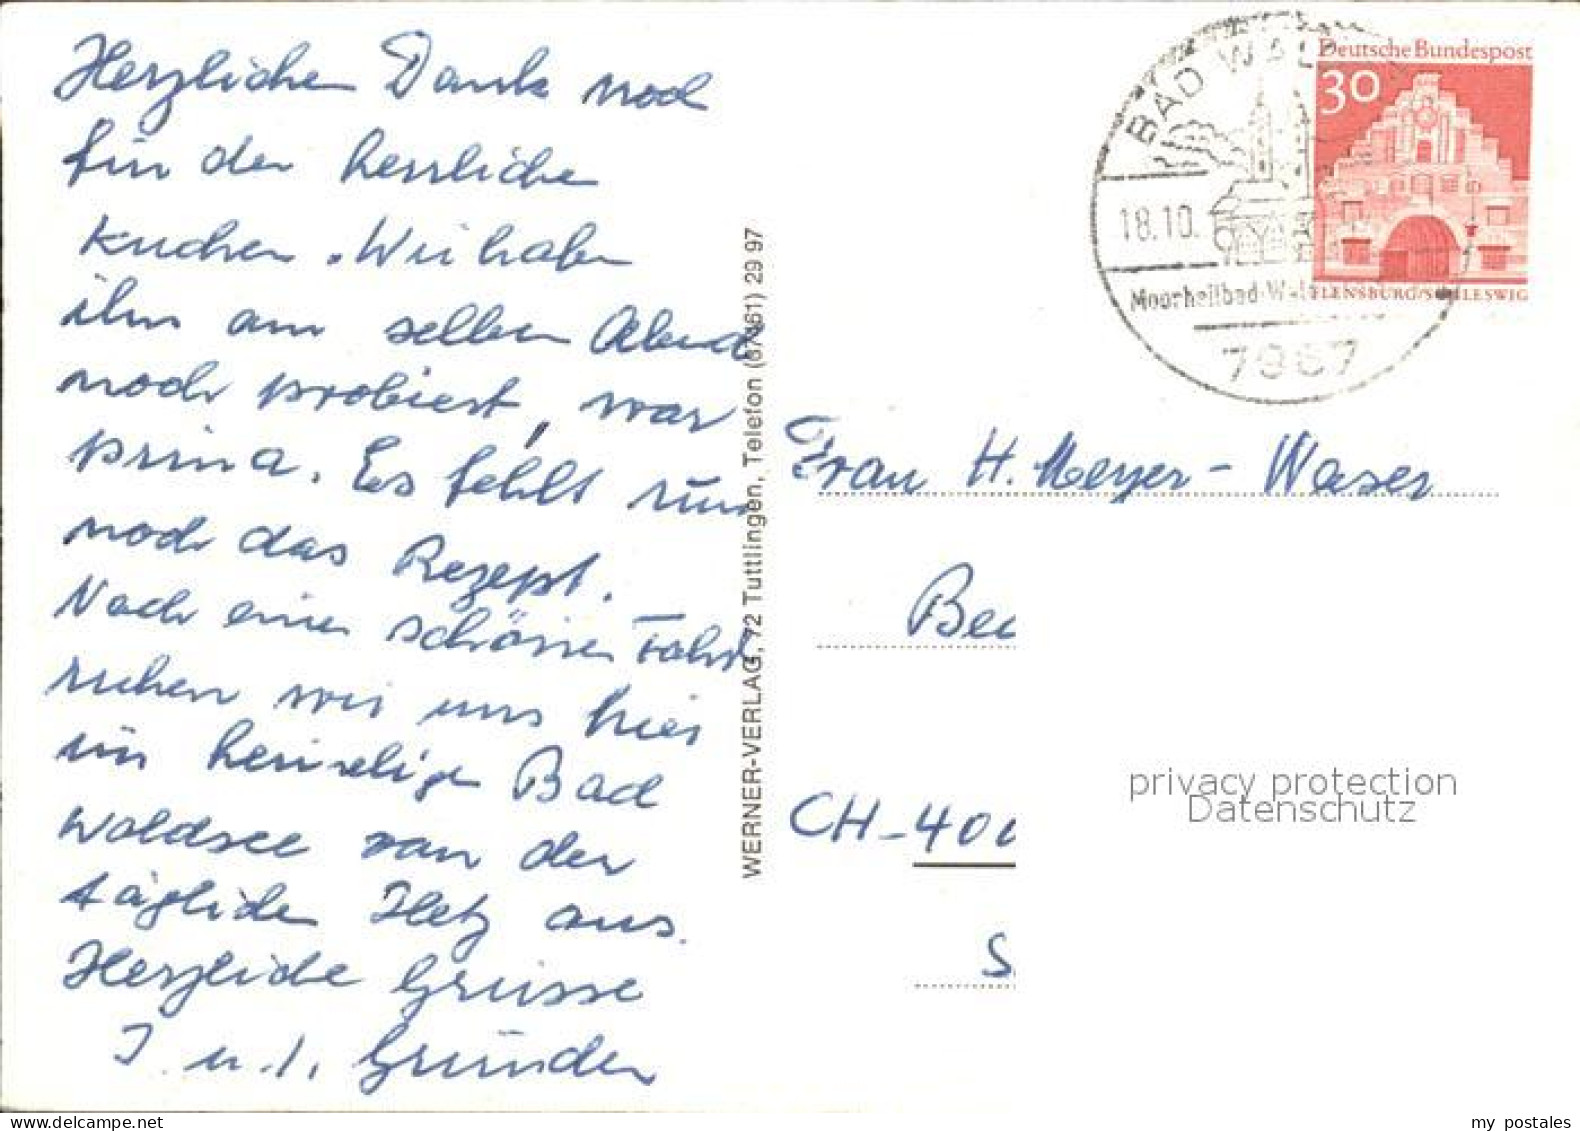 Herzlichen Dank noch
für den herrlichen
Kuchen. Wir haben
ihn am selben Abend
noch probiert, war
prima. Es fehlt nur
noch das Rezept.
Nach einer schönen Fahrt
ruhen wir uns hier
im heimeligen Bad
Waldsee von der
täglichen Hetz aus.
Herzliche Grüsse
J. u. J. Gründer
WERNER-VERLAG, 72 Tuttlingen, Telefon (07461) 29 97
BAD WALD
18.10.
Moorheilbad-W
7967
Deutsche Bundespost
30
FLENSBURG/SCHLESWIG
Frau H. Meyer-Waser
CH-400
S
privacy protection
Datenschutz
my postales